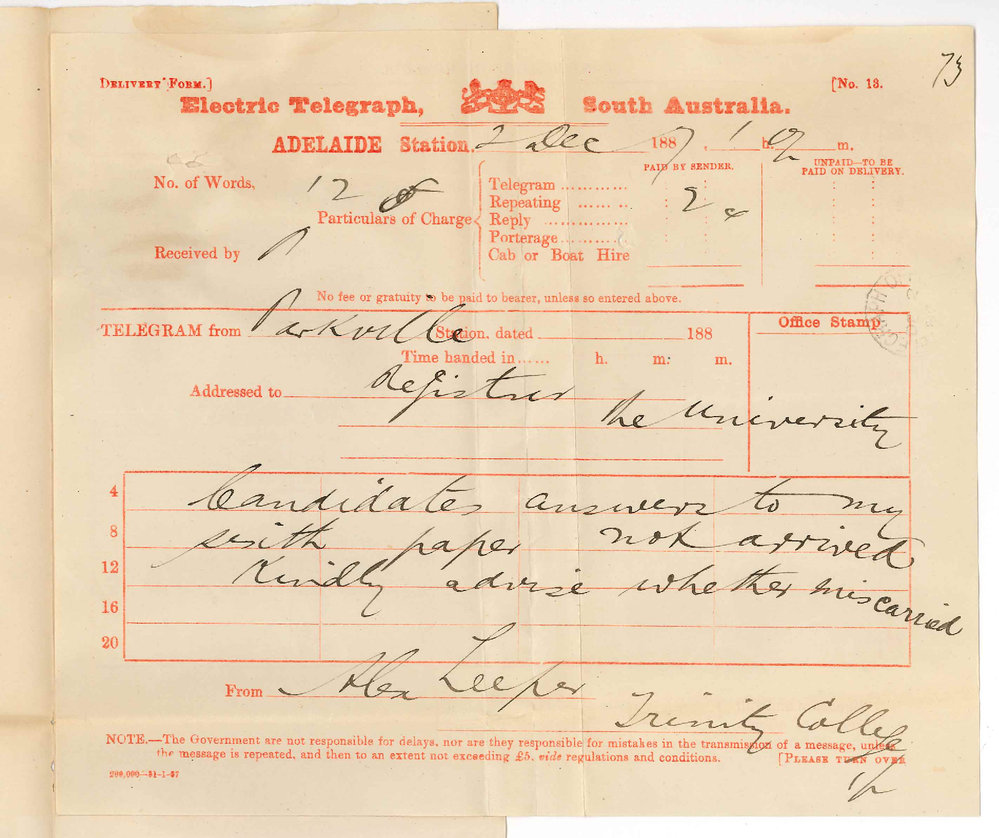 73
DELIVERY FORM.] [No. 13.
Electric Telegraph, South Australia.
ADELAIDE Station, 2 Dec 1887, 1 h. m.
No. of Words, 12
Particulars of Charge
Telegram ............
Repeating ...... ..
Reply ..............
Porterage..........
Cab or Boat Hire
PAID BY SENDER.
2
UNPAID—TO BE
PAID ON DELIVERY.
Received by
No fee or gratuity to be paid to bearer, unless so entered above.
TELEGRAM from Parkville Station, dated 188
Office Stamp
Time handed in...... h. m: m.
Addressed to Registrar
the University
4 Candidates answers to my
8 sixth paper not arrived
12 Kindly advise whether miscarried
16
20
From Alex Leeper
Trinity College
NOTE.—The Government are not responsible for delays, nor are they responsible for mistakes in the transmission of a message, unless
the message is repeated, and then to an extent not exceeding £5, vide regulations and conditions. [PLEASE TURN OVER